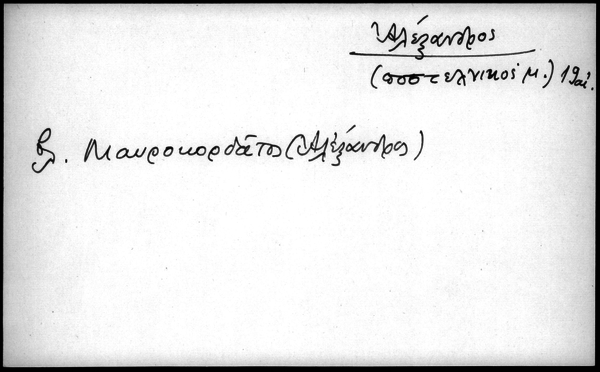 Ἀλέξανδρος
(ποστελνικος μ.) 19αι.
βλ. Μαυροκορδᾶτος (Ἀλέξανδρος)